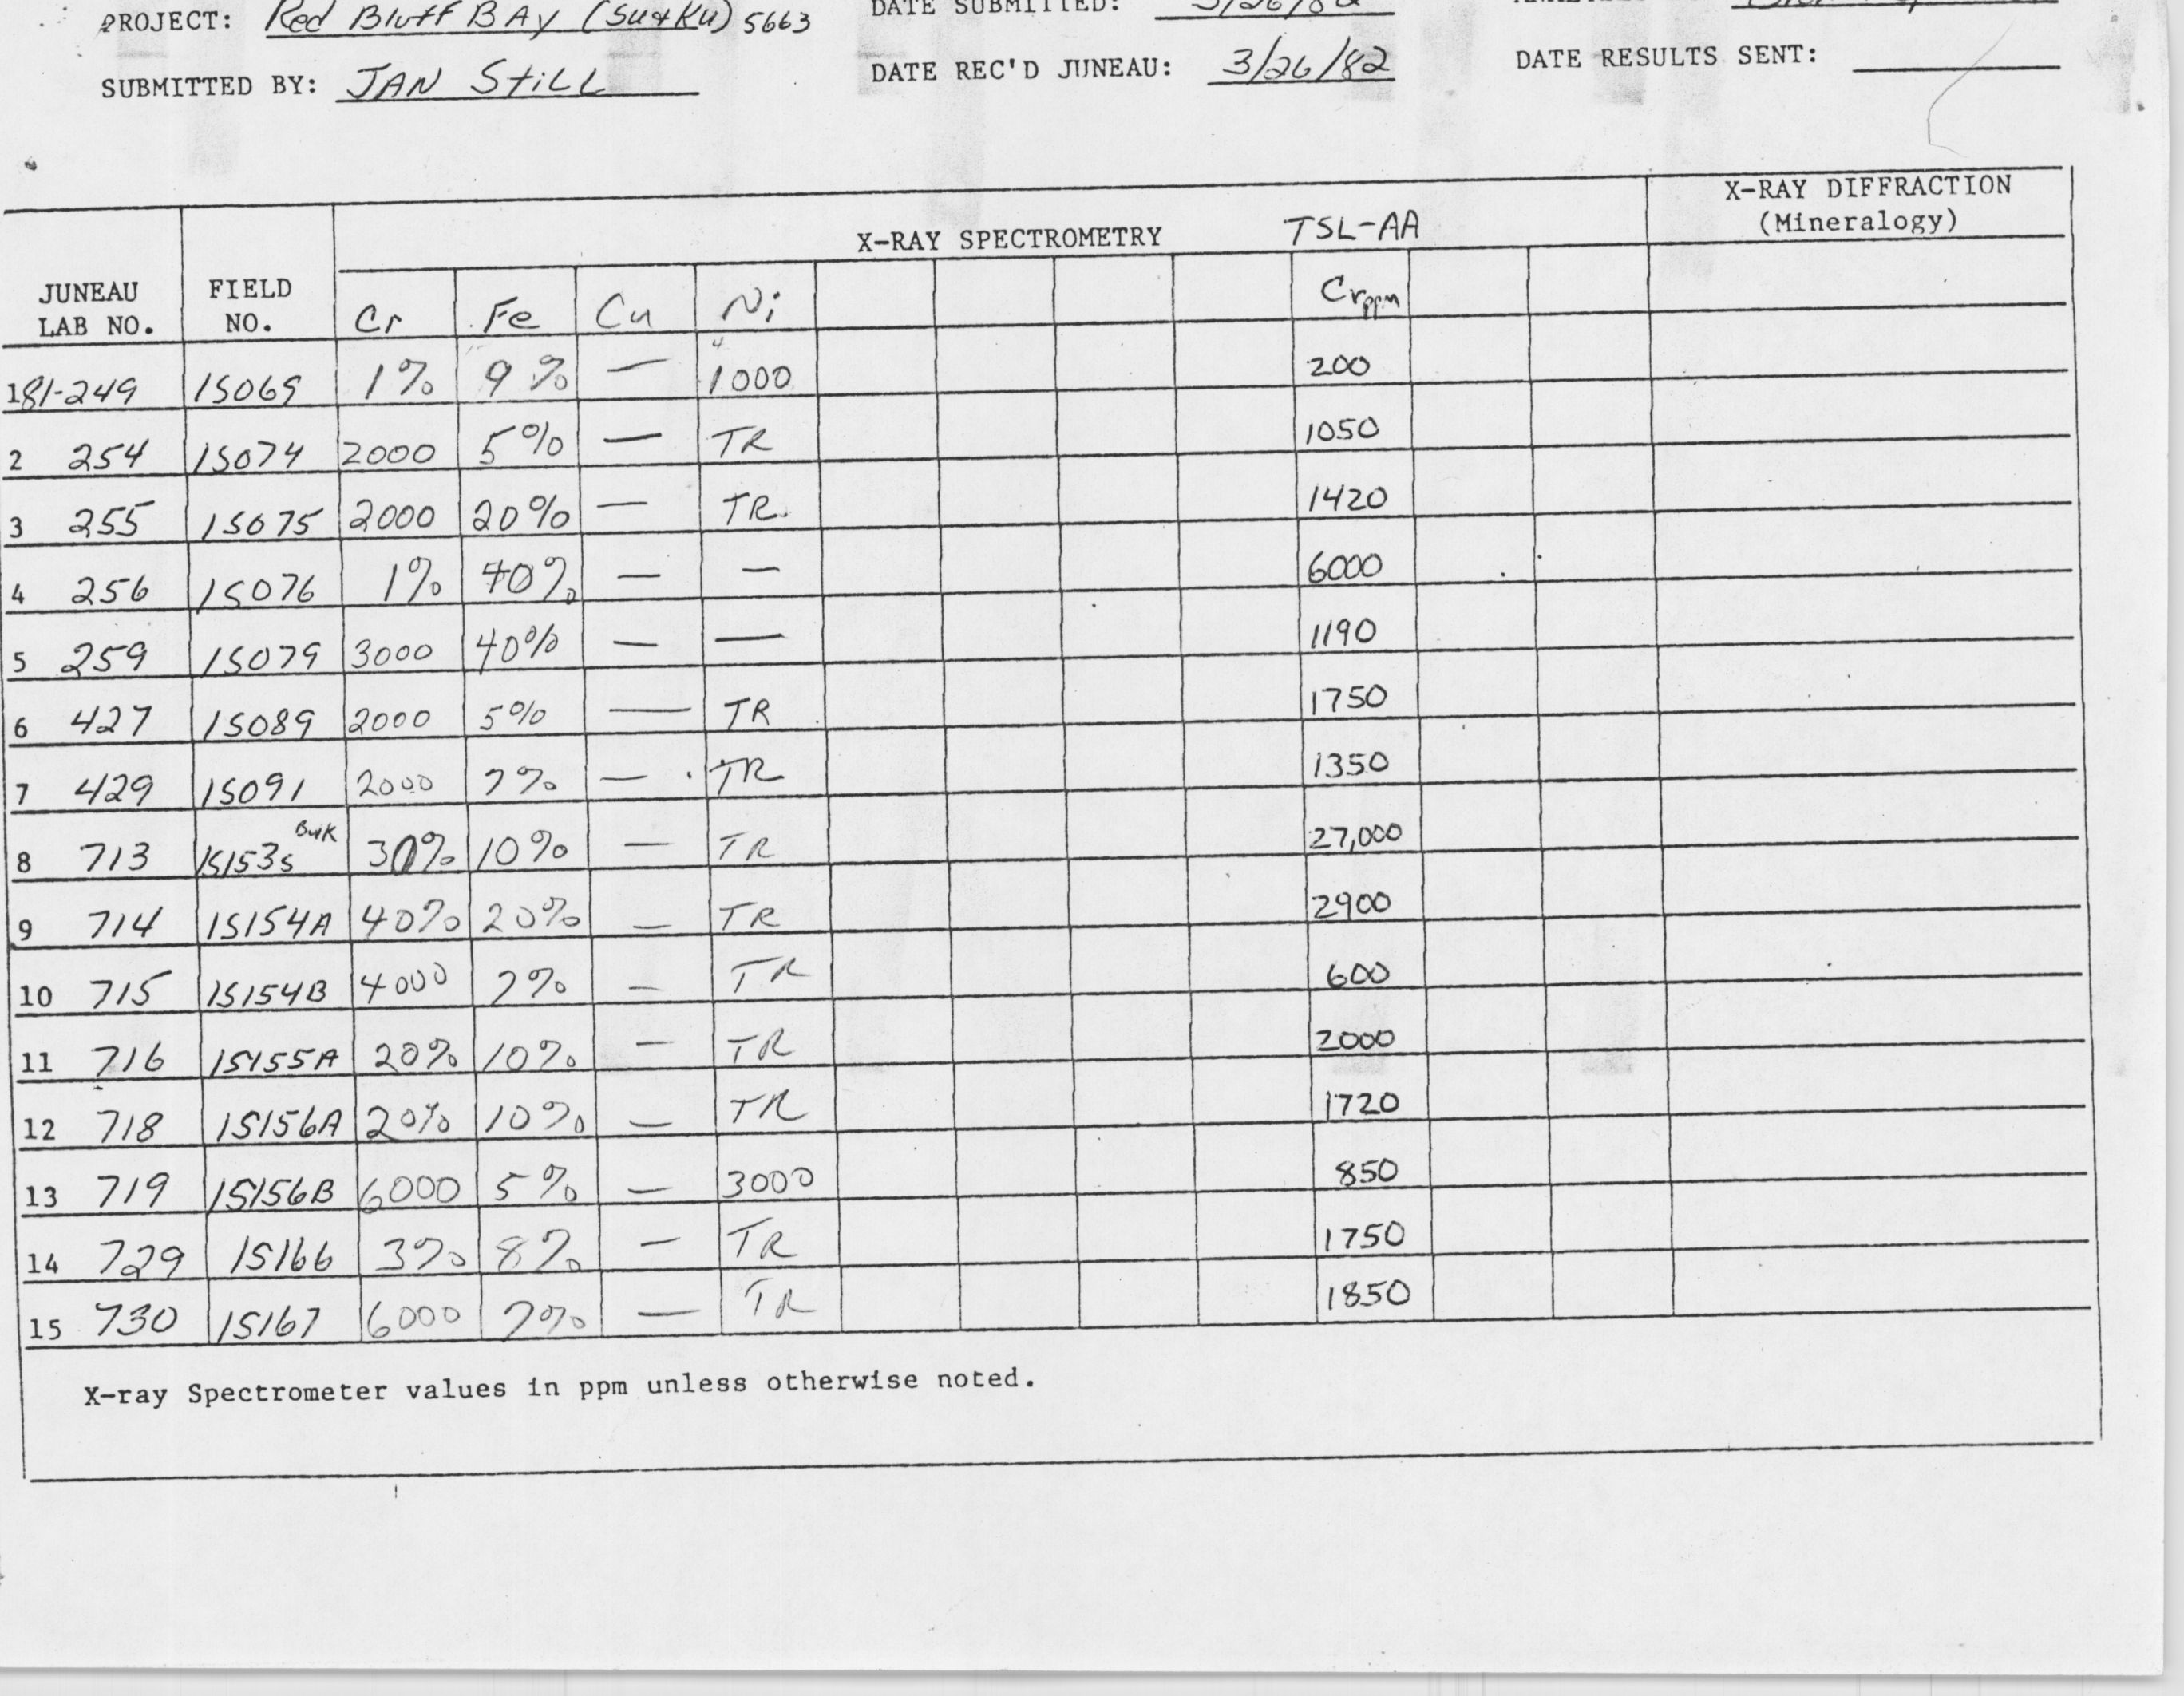 PROJECT: Red Bluff BAy (Su+Ku) 5663 DATE SUBMITTED: 3/26/82
SUBMITTED BY: JAN StiLL DATE REC'D JUNEAU: 3/26/82 DATE RESULTS SENT:
X-RAY SPECTROMETRY TSL-AA X-RAY DIFFRACTION (Mineralogy)
JUNEAU LAB NO. FIELD NO. Cr Fe Cu Ni Cr ppm
1 81-249 1S069 1% 9% — 1000 200
2 254 1S074 2000 5% — TR 1050
3 255 1S075 2000 20% — TR 1420
4 256 1S076 1% 40% — — 6000
5 259 1S079 3000 40% — — 1190
6 427 1S089 2000 5% — TR 1750
7 429 1S091 2000 7% — TR 1350
8 713 1S153s Bulk 30% 10% — TR 27,000
9 714 1S154A 40% 20% — TR 2900
10 715 1S154B 4000 7% — TR 600
11 716 1S155A 20% 10% — TR 2000
12 718 1S156A 20% 10% — TR 1720
13 719 1S156B 6000 5% — 3000 850
14 729 1S166 3% 8% — TR 1750
15 730 1S167 6000 7% — TR 1850
X-ray Spectrometer values in ppm unless otherwise noted.